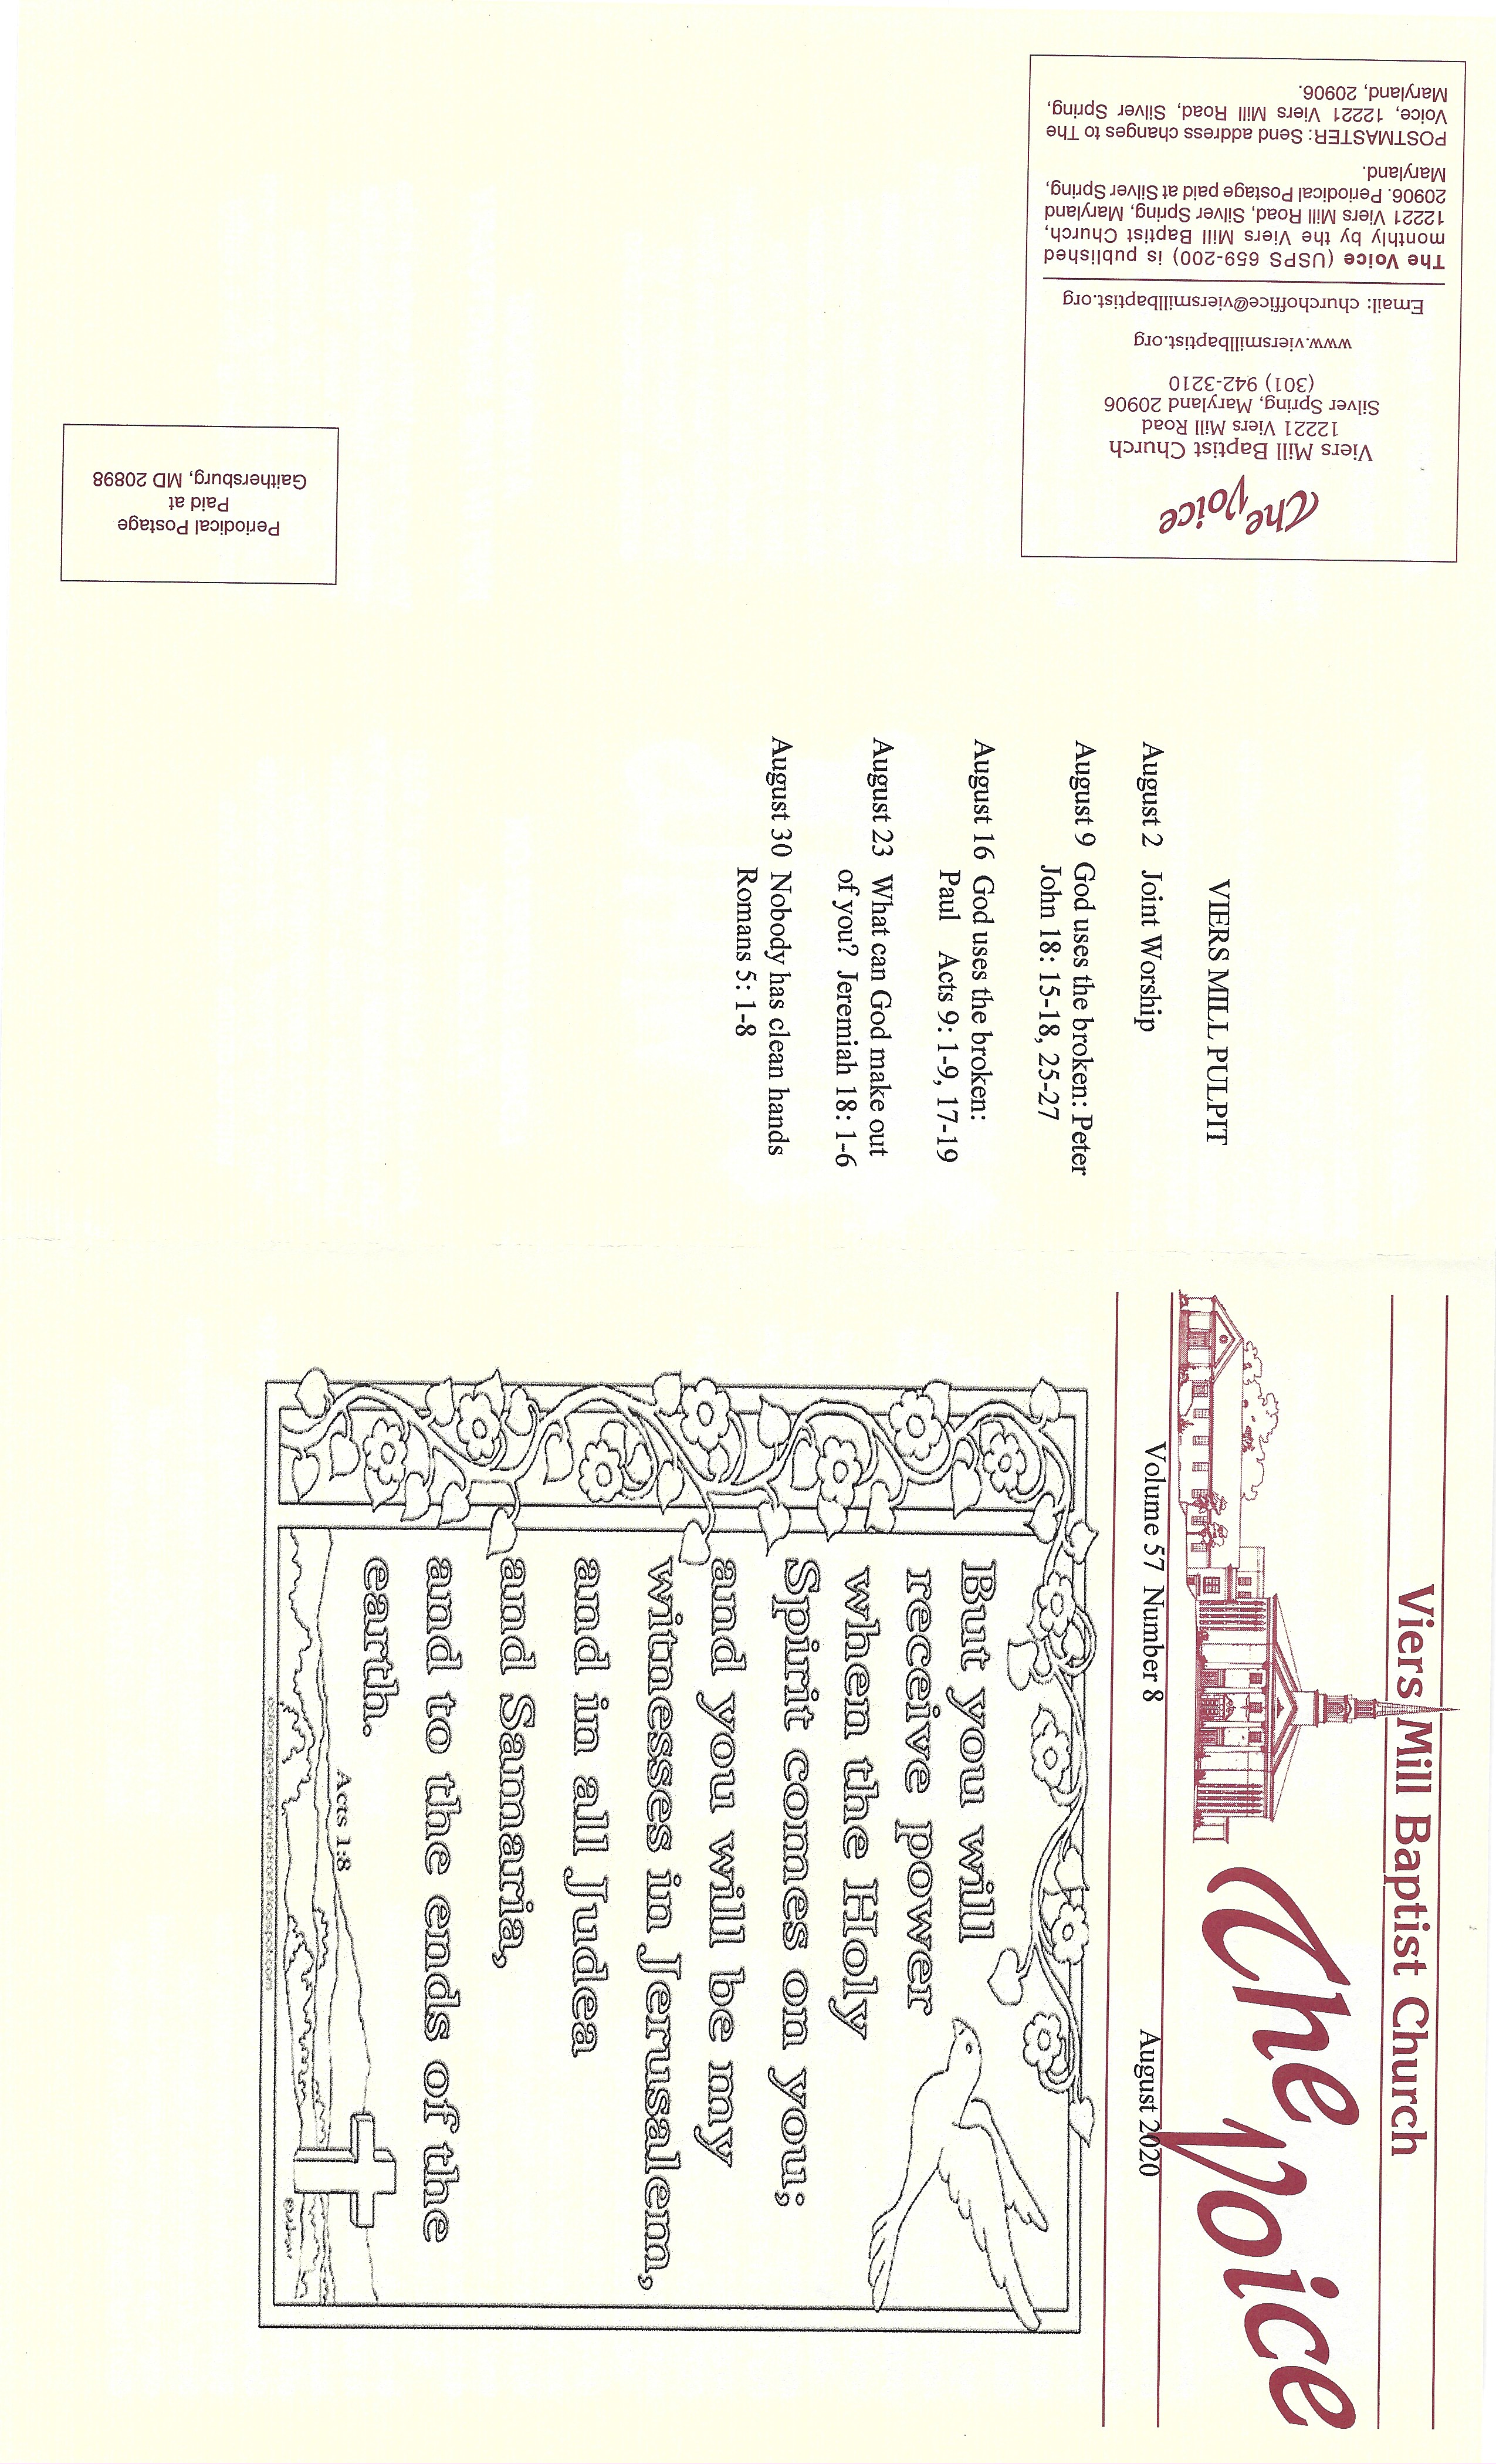 Viers Mill Baptist Church
The Voice
Volume 57 Number 8
August 2020
But you will
receive power
when the Holy
Spirit comes on you;
and you will be my
witnesses in Jerusalem,
and in all Judea
and Samaria,
and to the ends of the
earth.
Acts 1:8
VIERS MILL PULPIT
August 2 Joint Worship
August 9 God uses the broken: Peter
John 18: 15-18, 25-27
August 16 God uses the broken:
Paul Acts 9: 1-9, 17-19
August 23 What can God make out
of you? Jeremiah 18: 1-6
August 30 Nobody has clean hands
Romans 5: 1-8
The Voice
Viers Mill Baptist Church
12221 Viers Mill Road
Silver Spring, Maryland 20906
(301) 942-3210
www.viersmillbaptist.org
Email: churchoffice@viersmillbaptist.org
The Voice (USPS 659-200) is published
monthly by the Viers Mill Baptist Church,
12221 Viers Mill Road, Silver Spring, Maryland
20906. Periodical Postage paid at Silver Spring,
Maryland.
POSTMASTER: Send address changes to The
Voice, 12221 Viers Mill Road, Silver Spring,
Maryland, 20906.
Periodical Postage
Paid at
Gaithersburg, MD 20898